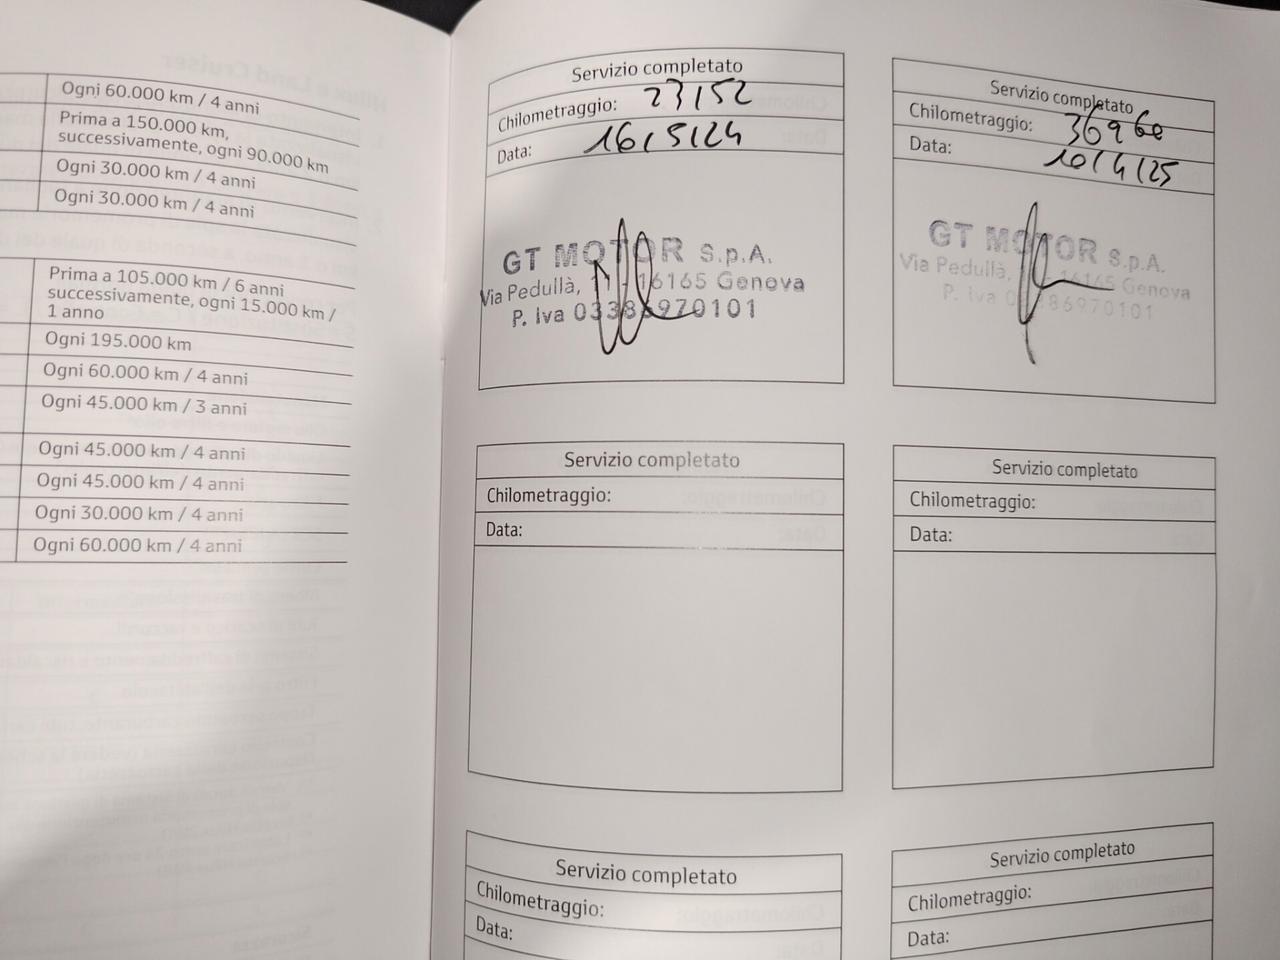 Ogni 60.000 km / 4 anni
Prima a 150.000 km,
successivamente, ogni 90.000 km
Ogni 30.000 km / 4 anni
Ogni 30.000 km / 4 anni
Prima a 105.000 km / 6 anni
successivamente, ogni 15.000 km /
1 anno
Ogni 195.000 km
Ogni 60.000 km / 4 anni
Ogni 45.000 km / 3 anni
Ogni 45.000 km / 4 anni
Ogni 45.000 km / 4 anni
Ogni 30.000 km / 4 anni
Ogni 60.000 km / 4 anni
Servizio completato
Chilometraggio: 23152
Data: 16/5/24
GT MOTOR S.p.A.
Via Pedullà, 11 - 16165 Genova
P. Iva 03386970101
Servizio completato
Chilometraggio: 36960
Data: 10/4/25
GT MOTOR S.p.A.
Via Pedullà, 16165 Genova
P. Iva 03386970101
Servizio completato
Chilometraggio:
Data:
Servizio completato
Chilometraggio:
Data:
Servizio completato
Chilometraggio:
Data:
Servizio completato
Chilometraggio:
Data: